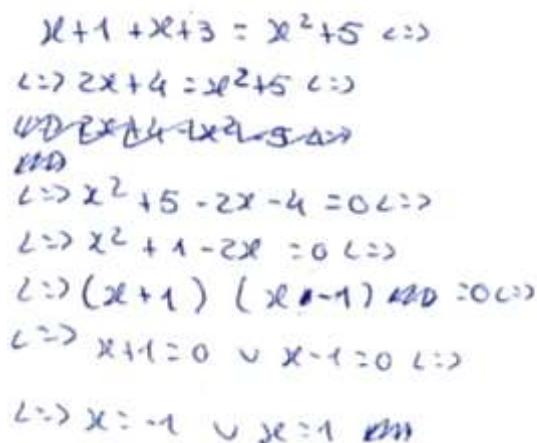 x+1+x+3 = x²+5 <=>
<=> 2x+4 = x²+5 <=>
<=> x²+5-2x-4 = 0 <=>
<=> x²+1-2x = 0 <=>
<=> (x+1) (x-1) = 0 <=>
<=> x+1=0 ∨ x-1=0 <=>
<=> x=-1 ∨ x=1